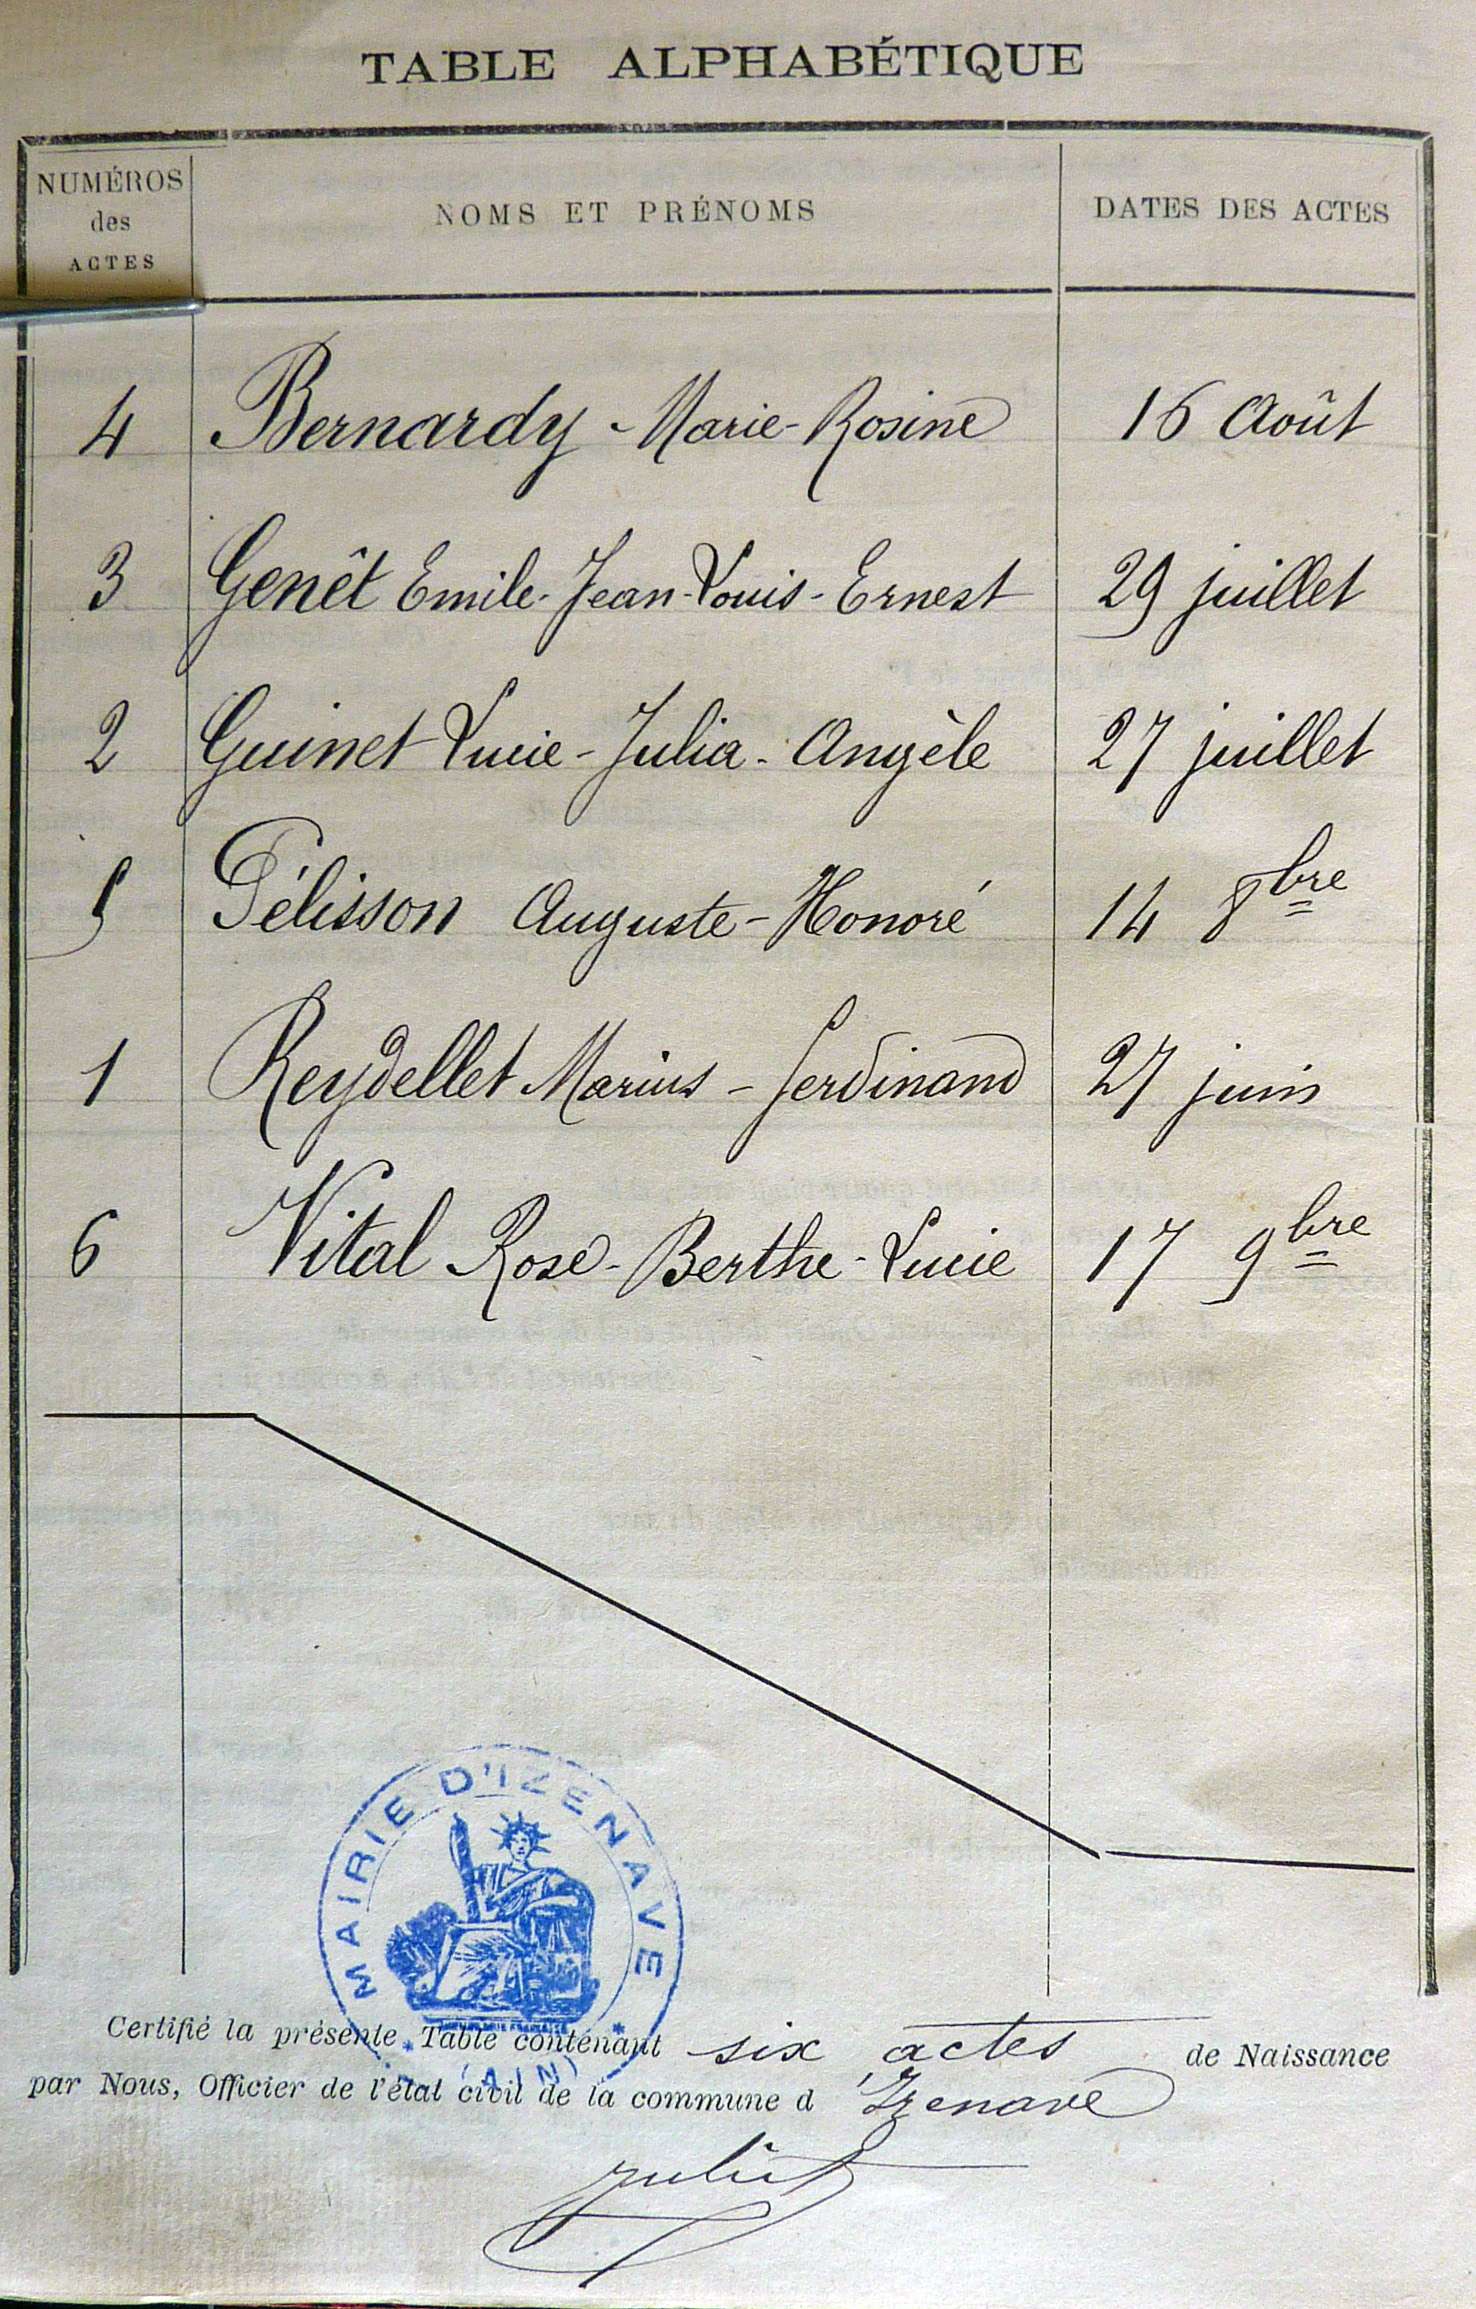 TABLE ALPHABÉTIQUE
NUMÉROS des ACTES NOMS ET PRÉNOMS DATES DES ACTES
4 Bernardy - Marie-Rosine 16 Août
3 Genêt Emile-Jean-Louis-Ernest 29 juillet
2 Guinet Lucie-Julia-Angèle 27 juillet
5 Pélisson Auguste-Honoré 14 8bre
1 Reydellet Marius-Ferdinand 27 juin
6 Vital Rose-Berthe-Lucie 17 9bre
MAIRIE D'IZENAVE
(AIN)
Certifié la présente Table contenant six actes de Naissance
par Nous, Officier de l'état civil de la commune d'Izenave